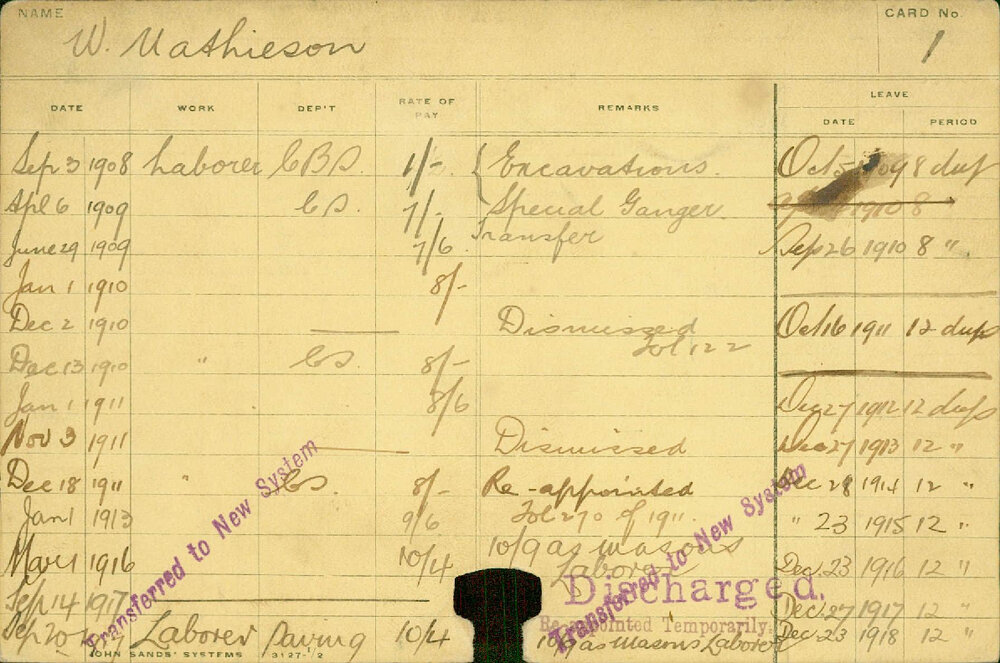 NAME CARD No.
W. Mathieson 1
DATE WORK DEP'T RATE OF PAY REMARKS LEAVE
DATE PERIOD
Sep 3 1908 Laborer 1/- Excavations. Oct 5 8 days
Apl 6 1909 CS. 7/- Special Ganger 1910 8 "
June 29 1909 7/6 Transfer Sep 26 1910 8 "
Jan 1 1910 8/-
Dec 2 1910 Dismissed Oct 16 1911 12 days
Fol 122
Dec 13 1910 " CS. 8/-
Jan 1 1911 8/6 Dec 27 1912 12 days
Nov 3 1911 Dismissed Dec 27 1913 12 "
Dec 18 1911 " CS. 8/- Re-appointed Dec 28 1914 12 "
Jan 1 1913 9/6 Fol 270 of 1911. " 23 1915 12 "
Mar 1 1916 10/4 10/9 as masons Laborer Dec 23 1916 12 "
Sep 14 1917 Discharged. Dec 27 1917 12 "
Re-appointed Temporarily.
Sep 20 Laborer Paving 10/4 as Masons Laborer Dec 23 1918 12 "
Transferred to New System
Transferred to New System
JOHN SANDS' SYSTEMS 3127-1/2